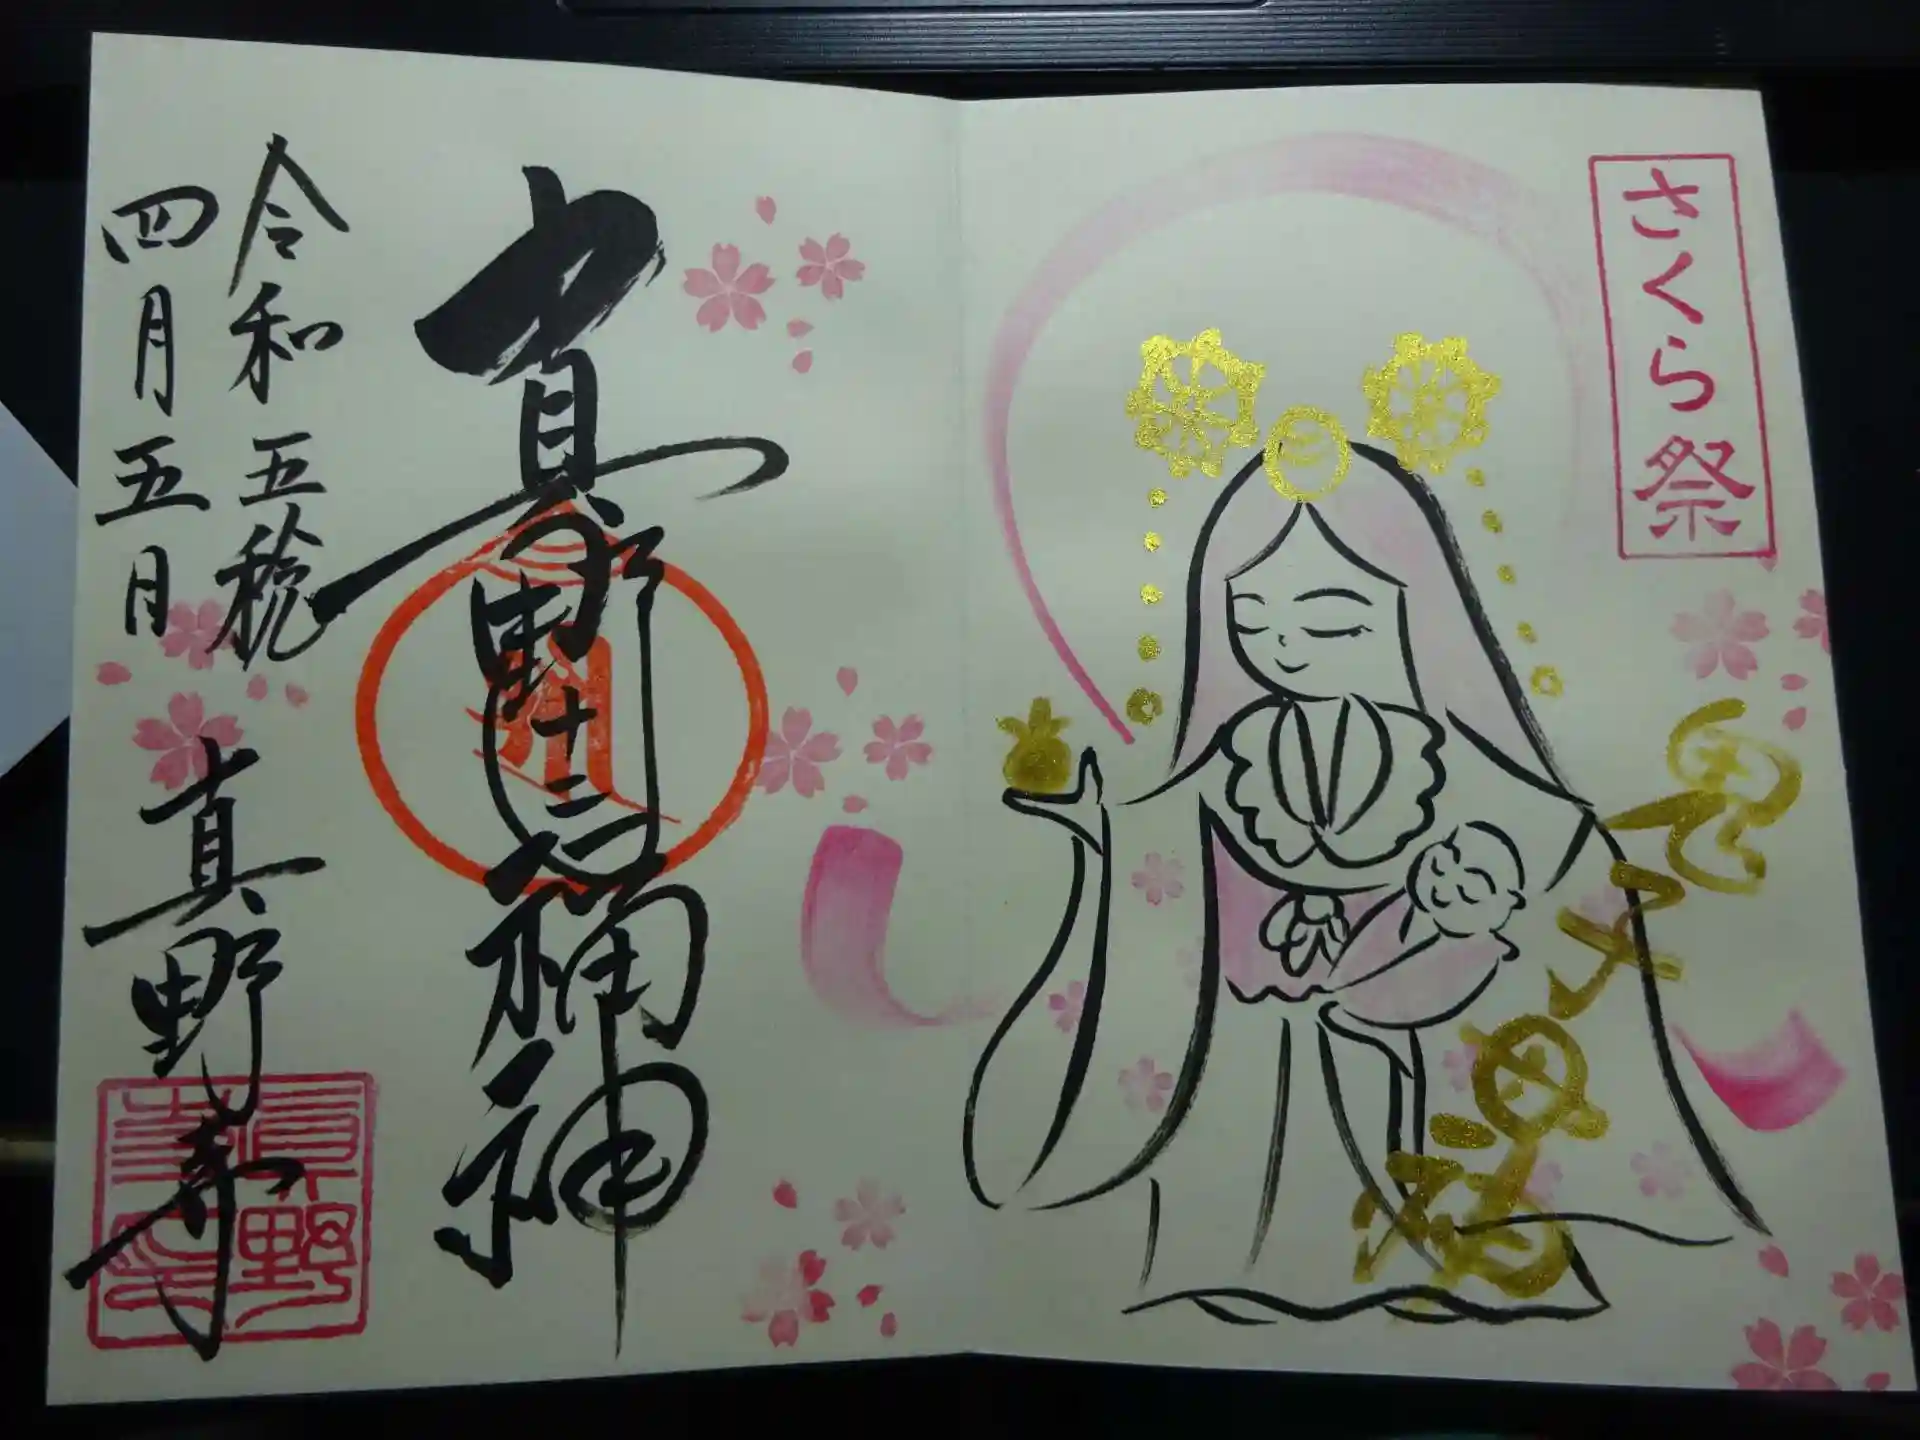 さくら祭
鬼子母神
真野十二福神
令和五稔
四月五日
真野寺
真野寺印